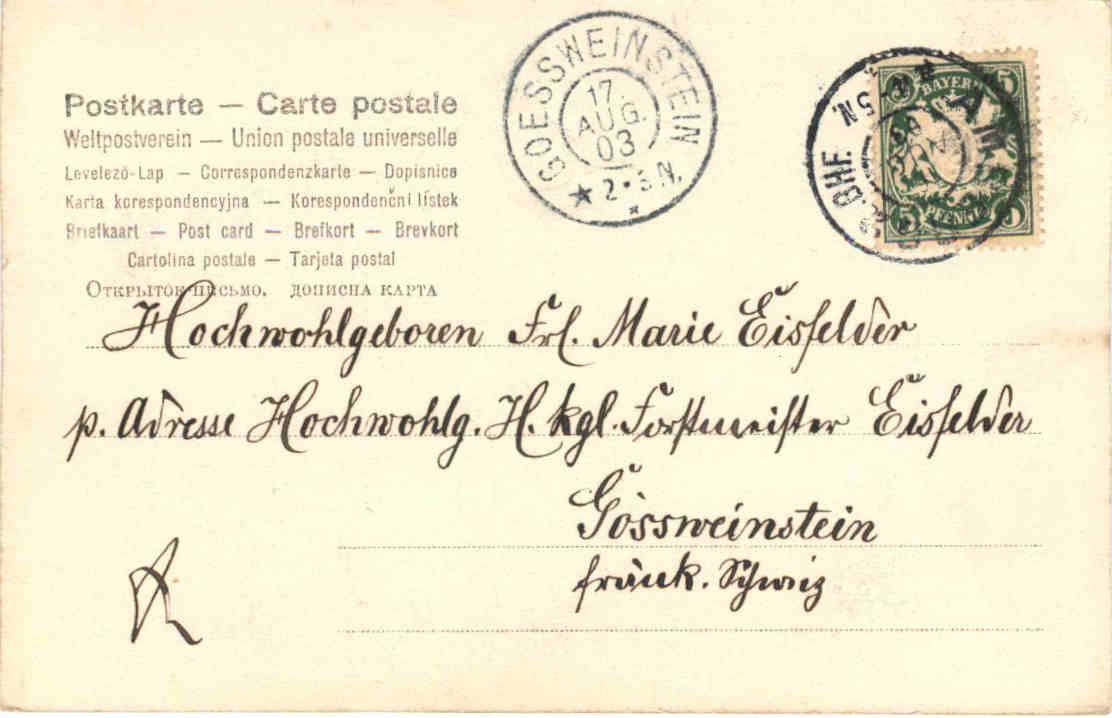 Postkarte — Carte postale
Weltpostverein — Union postale universelle
Levelező-Lap — Correspondenzkarte — Dopisnice
Karta korespondencyjna — Korespondenční lístek
Briefkaart — Post card — Brefkort — Brevkort
Cartolina postale — Tarjeta postal
Открытое письмо. дописна карта
GOESSWEINSTEIN
17.
AUG.
03
2-3N.
BAYERN
5 5
PFENNIG
BHF.
5N
Hochwohlgeboren Frl. Marie Eisfelder
p. Adresse Hochwohlg. H. kgl. Forstmeister Eisfelder
Gössweinstein
fränk. Schweiz